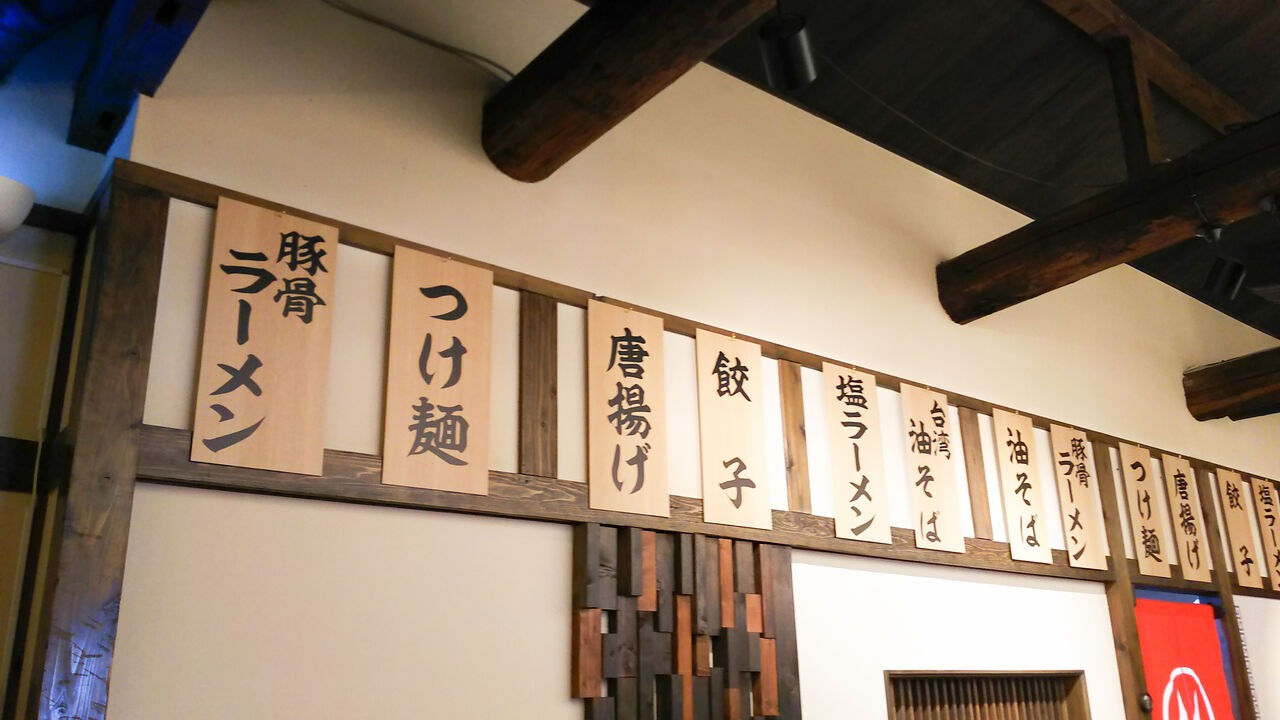 豚骨
ラーメン
つけ麺
唐揚げ
餃子
塩ラーメン
台湾
油そば
油そば
豚骨
ラーメン
つけ麺
唐揚げ
餃子
塩ラーメン